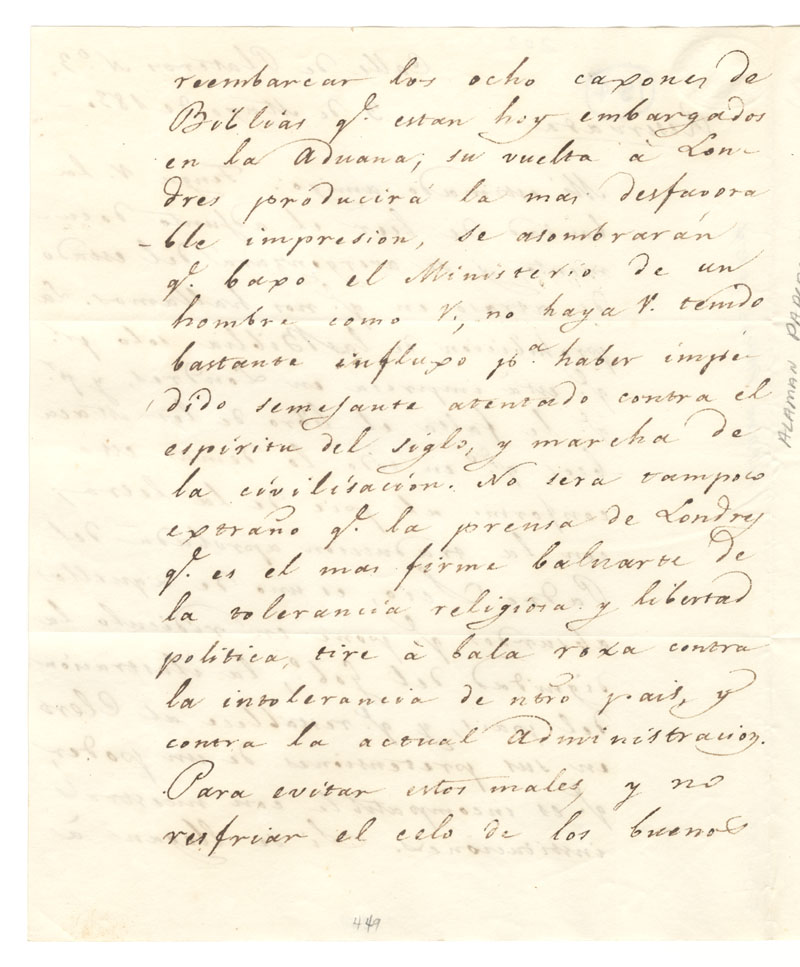 reembarcar los ocho caxones de
Biblias q.e estan hoy embargados
en la Aduana, su vuelta à Lon-
dres producirá la mas desfavora
-ble impresion, se asombrarán
q.e baxo el Ministerio de un
hombre como V., no haya V. tenido
bastante influxo p.a haber impe
dido semejante atentado contra el
espiritu del siglo, y marcha de
la civilisación. No sera tampoco
extraño q.e la prensa de Londres
q.e es el mas firme baluarte de
la tolerancia religiosa y libertad
politica, tire à bala roxa contra
la intolerancia de ntro pais, y
contra la actual Administracion.
Para evitar estos males, y no
resfriar el celo de los buenos
449
ALAMAN